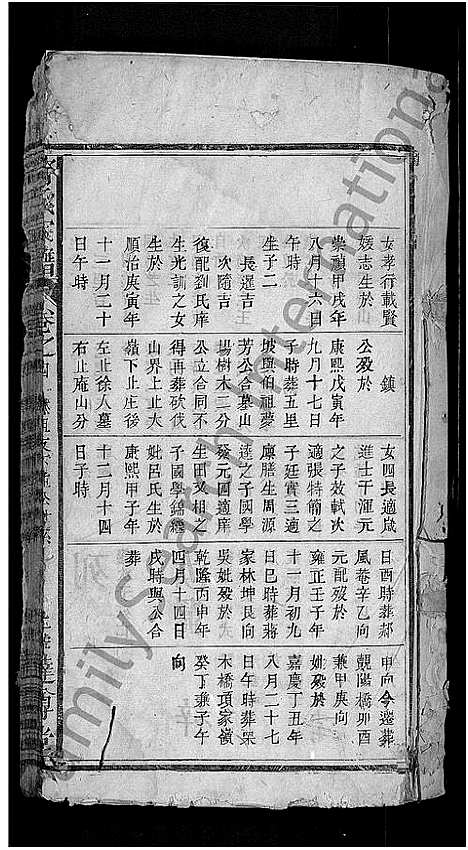 女孝行載賢
媛志生於
崇禎甲戌年
八月十六日
午時
生子二
長選吉
次隨吉
復配劉氏庠
生光訓之女
生於
順治庚寅年
十一月二十
日午時
鎮
公歿於
康熙戊寅年
九月十七日
子時葬五里
坡與伯祖夢
芳公合墓山
場樹木二分
公立合同不
得再葬砍伐
山界上止大
嶺下止庄後
左止徐人墓
右止庵山分
女四長適歲
進士干渾元
之子效軾次
適張特簡之
子廷實三適
廩膳生周源
達之子國學
發元四適庠
生田又相之
子國學錦繼
妣呂氏生於
康熙甲子年
十二月十四
日子時
日酉時葬郝
風菴辛乙向
元配歿於
雍正壬子年
十一月初九
日巳時葬蔣
家林坤艮向
吳妣歿於
乾隆丙申年
四月十四日
戌時與公合
葬
申向今遷葬
靚陽橋卯酉
兼甲庚向
妣歿於
嘉慶丁丑年
八月二十七
日午時葬杲
木橋項家嶺
癸丁兼子午
向